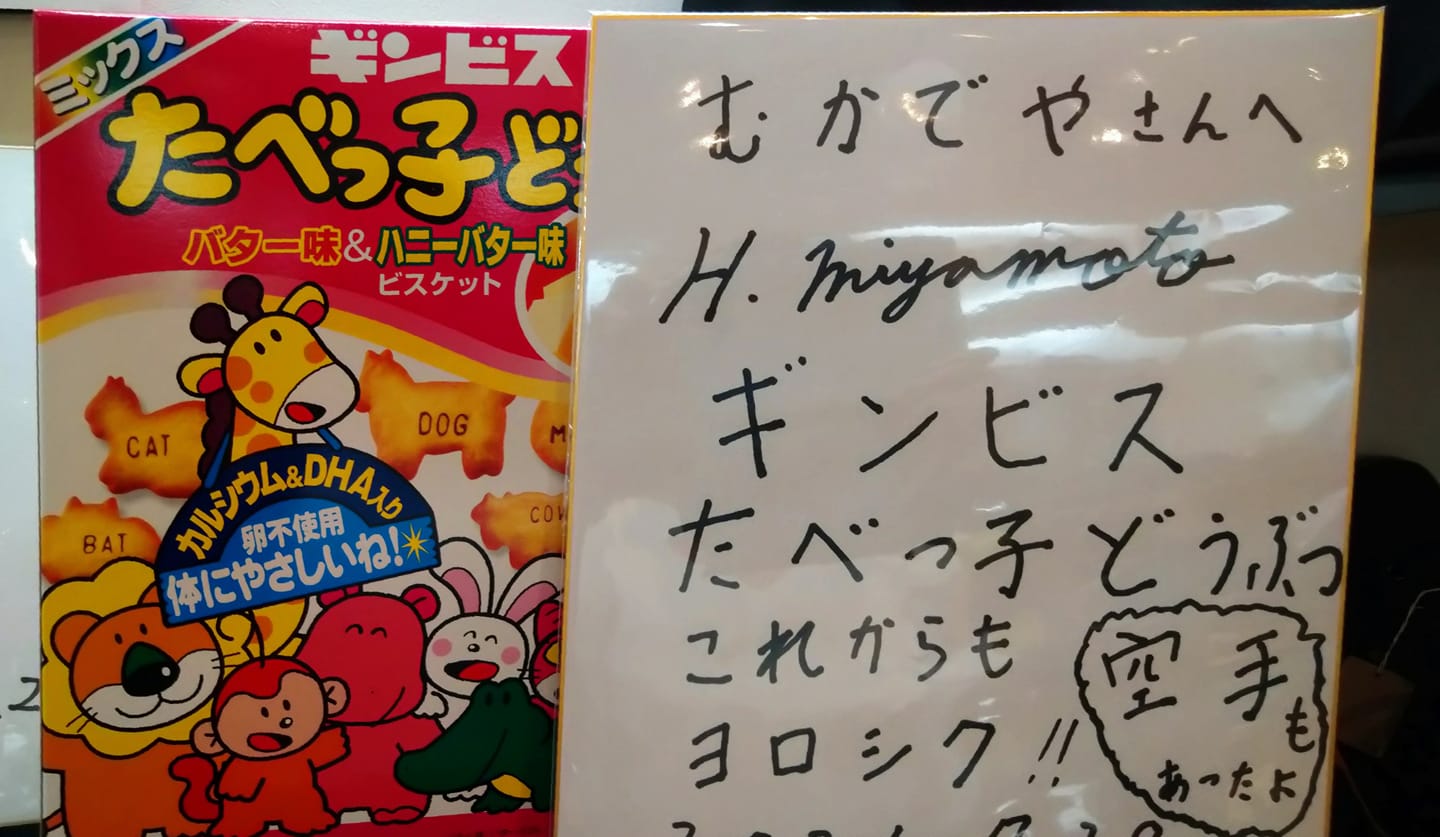 ミックス
ギンビス
たべっ子ど
バター味&ハニーバター味
ビスケット
CAT
DOG
BAT
COW
カルシウム&DHA入り
卵不使用
体にやさしいね!
むかでやさんへ
H. miyamoto
ギンビス
たべっ子どうぶつ
これからも
ヨロシク!!
空手
も
あったよ